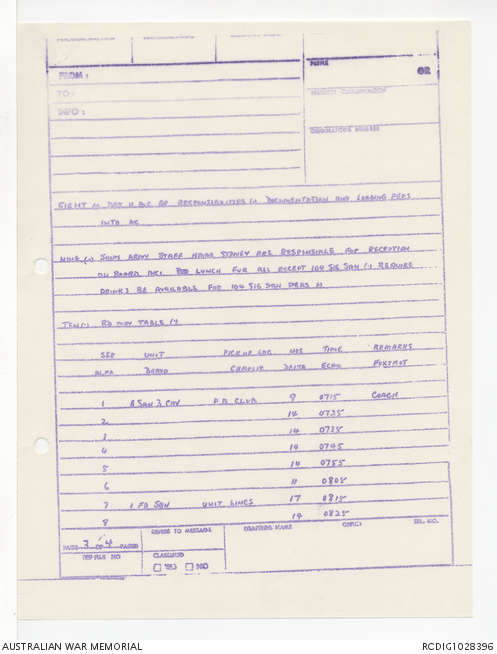 FROM :
TO :
INFO :
GR
EIGHT (.) DET 11 RESPONSIBILITIES (.) DOCUMENTATION AND LOADING PERS
INTO AC
NINE (.) SHIPS ARMY STAFF HMAS SYDNEY ARE RESPONSIBLE FOR RECEPTION
ON BOARD INCL LUNCH FOR ALL EXCEPT 104 SIG SQN (.) REQUIRE
DRINKS BE AVAILABLE FOR 104 SIG SQN PERS (.)
TEN (.) RD MOV TABLE (.)
SER UNIT PICK UP LOC NOS TIME REMARKS
ALFA BRAVO CHARLIE DELTA ECHO FOXTROT
1 A SQN 3 CAV P.B. CLUB 9 0715 COACH
2 14 0725
3 14 0735
4 14 0745
5 14 0755
6 11 0805
7 1 FD SQN UNIT LINES 17 0815
8 14 0825
PAGE 3 OF 4 PAGES
REFERS TO MESSAGE
DRAFTERS NAME
OFFICE
TEL. NO.
REF FILE NO
CLASSIFIED
YES NO
AUSTRALIAN WAR MEMORIAL
RCDIG1028396